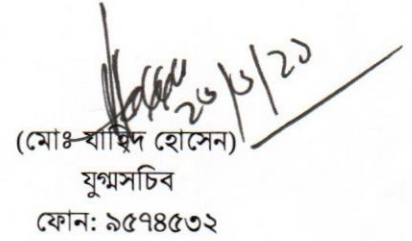 (মোঃ যাহিদ হোসেন)
যুগ্মসচিব
ফোন: ৯৫৭৪৫৩২